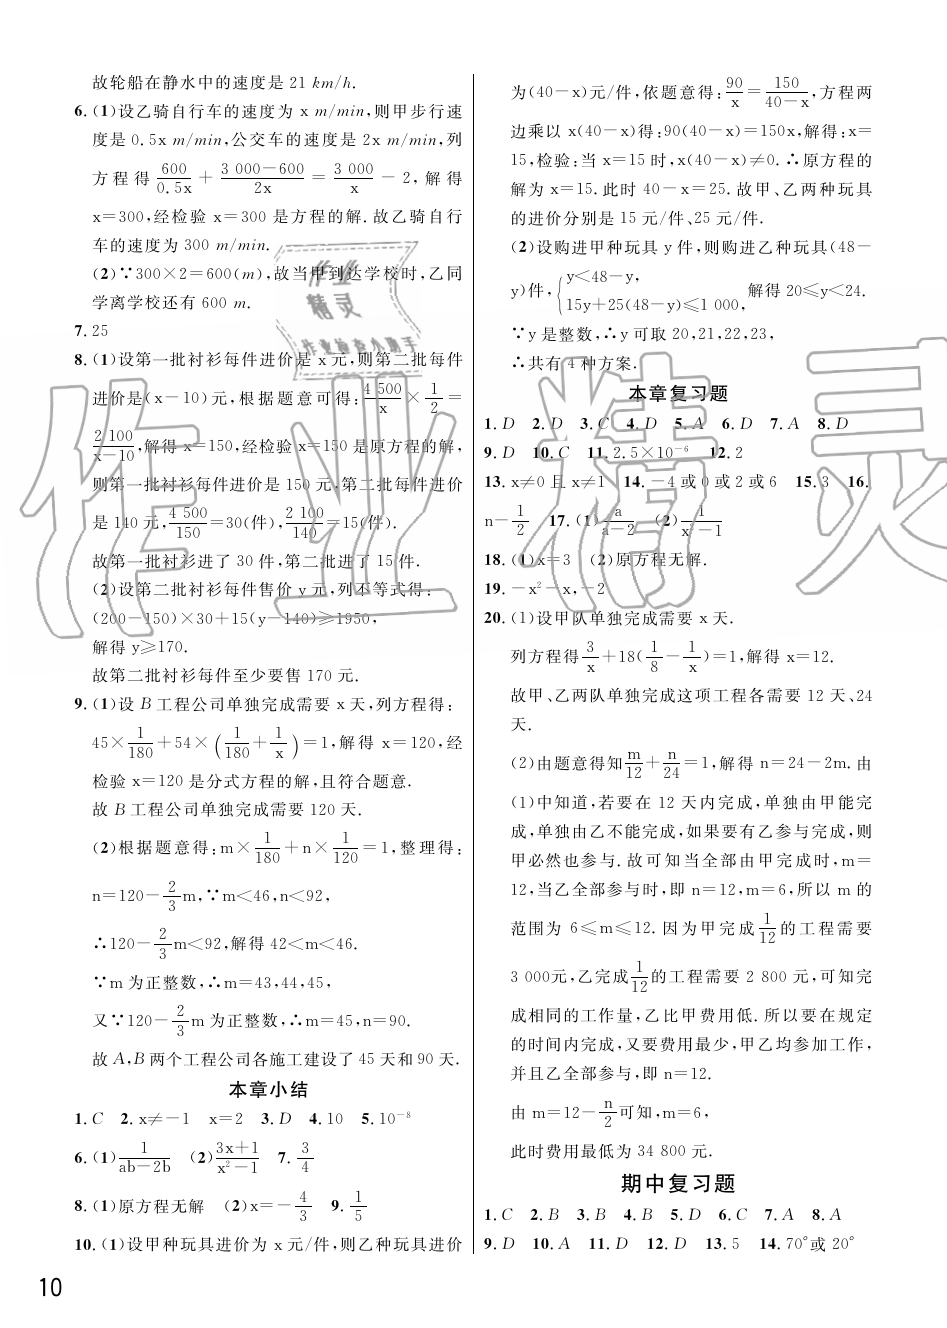 故轮船在静水中的速度是 21 km/h.
6. (1)设乙骑自行车的速度为 x m/min,则甲步行速
度是 0.5x m/min,公交车的速度是 2x m/min,列
方程得 600/0.5x + (3 000-600)/2x = 3 000/x - 2,解得
x=300,经检验 x=300 是方程的解.故乙骑自行
车的速度为 300 m/min.
(2)∵300×2=600(m),故当甲到达学校时,乙同
学离学校还有 600 m.
7. 25
8. (1)设第一批衬衫每件进价是 x 元,则第二批每件
进价是(x-10)元,根据题意可得: 4 500/x × 1/2 =
2 100/(x-10),解得 x=150,经检验 x=150 是原方程的解,
则第一批衬衫每件进价是 150 元,第二批每件进价
是 140 元, 4 500/150=30(件), 2 100/140=15(件).
故第一批衬衫进了 30 件,第二批进了 15 件.
(2)设第二批衬衫每件售价 y 元,列不等式得:
(200-150)×30+15(y-140)≥1950,
解得 y≥170.
故第二批衬衫每件至少要售 170 元.
9. (1)设 B 工程公司单独完成需要 x 天,列方程得:
45× 1/180 +54× (1/180 + 1/x) =1,解得 x=120,经
检验 x=120 是分式方程的解,且符合题意.
故 B 工程公司单独完成需要 120 天.
(2)根据题意得:m× 1/180 +n× 1/120 =1,整理得:
n=120- 2/3 m,∵m<46,n<92,
∴120- 2/3 m<92,解得 42<m<46.
∵m 为正整数,∴m=43,44,45,
又∵120- 2/3 m 为正整数,∴m=45,n=90.
故 A,B 两个工程公司各施工建设了 45 天和 90 天.
本章小结
1. C 2. x≠-1 x=2 3. D 4. 10 5. 10⁻⁸
6. (1) 1/(ab-2b) (2) (3x+1)/(x²-1) 7. 3/4
8. (1)原方程无解 (2)x=- 4/3 9. 1/5
10. (1)设甲种玩具进价为 x 元/件,则乙种玩具进价
为(40-x)元/件,依题意得: 90/x = 150/(40-x),方程两
边乘以 x(40-x)得:90(40-x)=150x,解得:x=
15,检验:当 x=15 时,x(40-x)≠0.∴原方程的
解为 x=15.此时 40-x=25.故甲、乙两种玩具
的进价分别是 15 元/件、25 元/件.
(2)设购进甲种玩具 y 件,则购进乙种玩具(48-
y)件, { y<48-y, 15y+25(48-y)≤1 000, 解得 20≤y<24.
∵y 是整数,∴y 可取 20,21,22,23,
∴共有 4 种方案.
本章复习题
1. D 2. D 3. C 4. D 5. A 6. D 7. A 8. D
9. D 10. C 11. 2.5×10⁻⁶ 12. 2
13. x≠0 且 x≠1 14. -4 或 0 或 2 或 6 15. 3 16.
n- 1/2 17. (1) a/(a-2) (2) 1/(x²-1)
18. (1)x=3 (2)原方程无解.
19. -x²-x,-2
20. (1)设甲队单独完成需要 x 天.
列方程得 3/x +18( 1/8 - 1/x )=1,解得 x=12.
故甲、乙两队单独完成这项工程各需要 12 天、24
天.
(2)由题意得知 m/12 + n/24 =1,解得 n=24-2m.由
(1)中知道,若要在 12 天内完成,单独由甲能完
成,单独由乙不能完成,如果要有乙参与完成,则
甲必然也参与.故可知当全部由甲完成时,m=
12,当乙全部参与时,即 n=12,m=6,所以 m 的
范围为 6≤m≤12.因为甲完成 1/12 的工程需要
3 000元,乙完成 1/12 的工程需要 2 800 元,可知完
成相同的工作量,乙比甲费用低.所以要在规定
的时间内完成,又要费用最少,甲乙均参加工作,
并且乙全部参与,即 n=12.
由 m=12- n/2 可知,m=6,
此时费用最低为 34 800 元.
期中复习题
1. C 2. B 3. B 4. B 5. D 6. C 7. A 8. A
9. D 10. A 11. D 12. D 13. 5 14. 70°或 20°
10
作业精灵